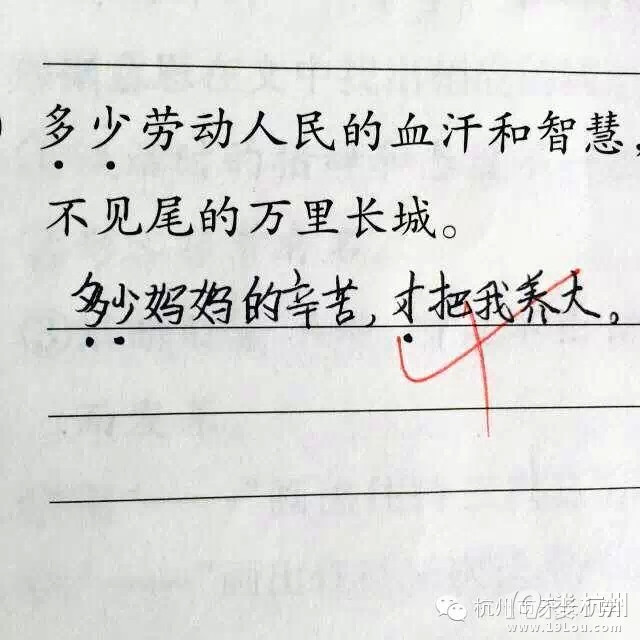 多少劳动人民的血汗和智慧，
不见尾的万里长城。
多少妈妈的辛苦，才把我养大。
www.19Lou.com